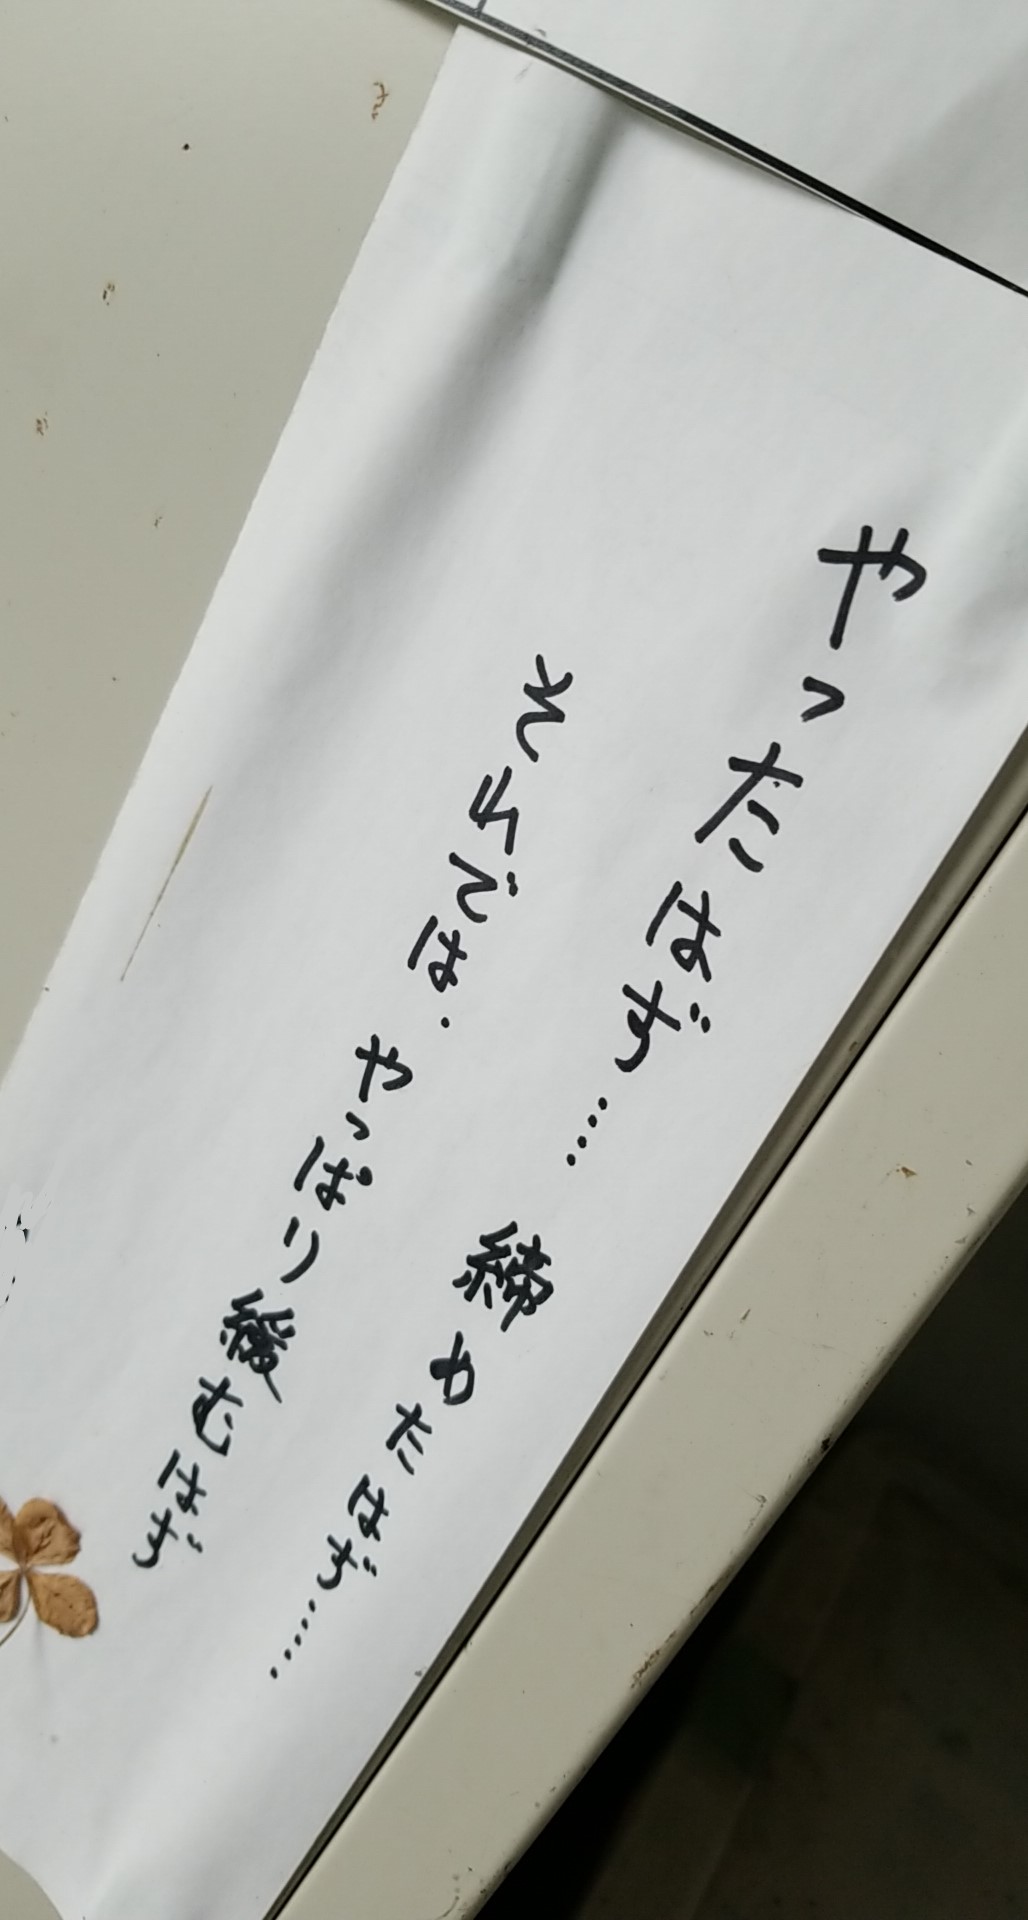 やったはず… 締めたはず……
それでは. やっぱり緩むはず